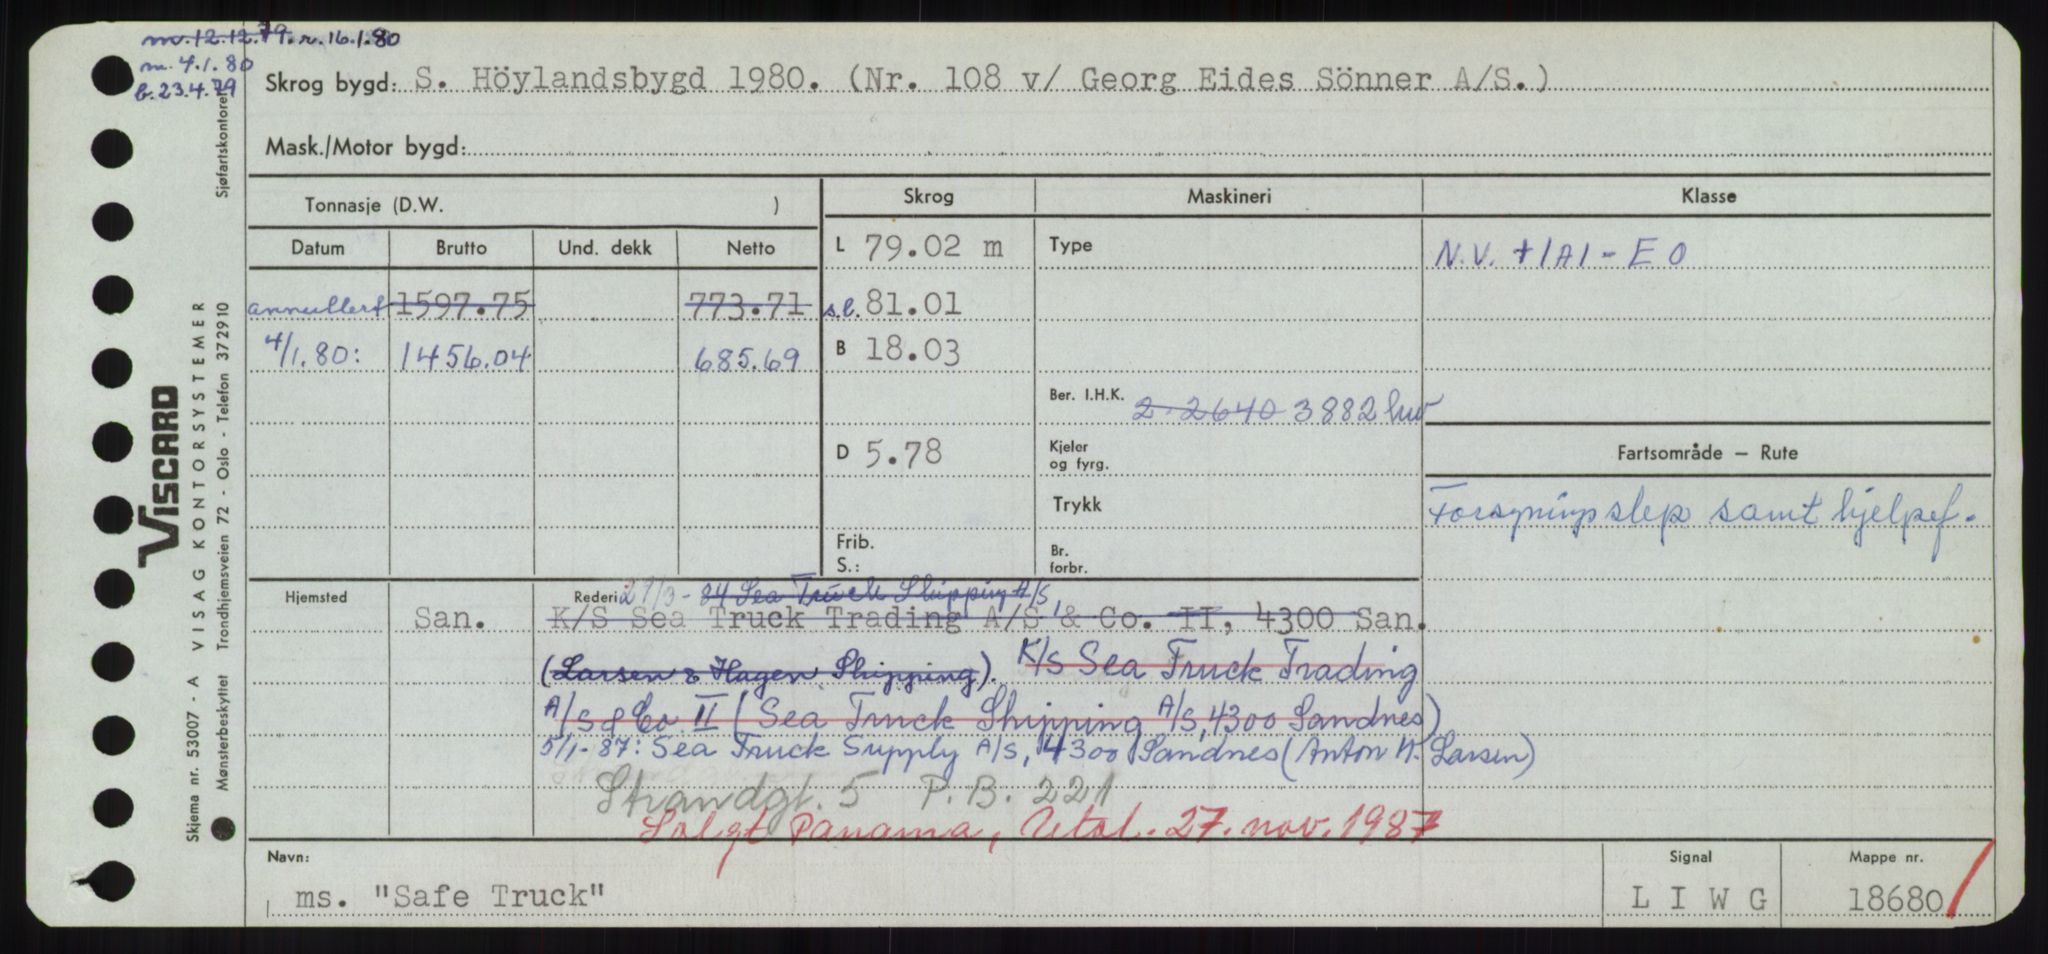 m. 12.12.79. r. 16.1.80
m. 4.1.80
b. 23.4.79
Skrog bygd: S. Höylandsbygd 1980. (Nr. 108 v/ Georg Eides Sönner A/S.)
Mask./Motor bygd:
Tonnasje (D.W. )
Skrog
Maskineri
Klasse
Datum
Brutto
Und. dekk
Netto
L 79.02 m
Type
N.V. +1A1 - E O
annullert 1597.75 773.71
s.l. 81.01
4/1.80: 1456.04 685.69
B 18.03
Ber. I.H.K. 2·2640 3882 kw
D 5.78
Kjeler
og fyrg.
Fartsområde — Rute
Trykk
Forsyningsslep samt hjelpef.
Frib.
S.:
Br.
forbr.
Hjemsted
San.
Rederi 27/3-84 Sea Truck Shipping A/S
K/S Sea Truck Trading A/S & Co. II, 4300 San.
(Larsen & Hagen Shipping). K/S Sea Truck Trading
A/S & Co II (Sea Truck Shipping A/S, 4300 Sandnes)
5/1-87: Sea Truck Supply A/S, 4300 Sandnes (Anton H. Larsen)
Strandgt. 5 P.B. 221
Solgt Panama, 27. nov. 1987
Navn:
ms. "Safe Truck"
Signal
L I W G
Mappe nr.
18680
Skjema nr. 53007 - A VISAG KONTORSYSTEMER
Mønsterbeskyttet Trondhjemsveien 72 - Oslo - Telefon 372910
VISCARD
Sjøfartskontoret